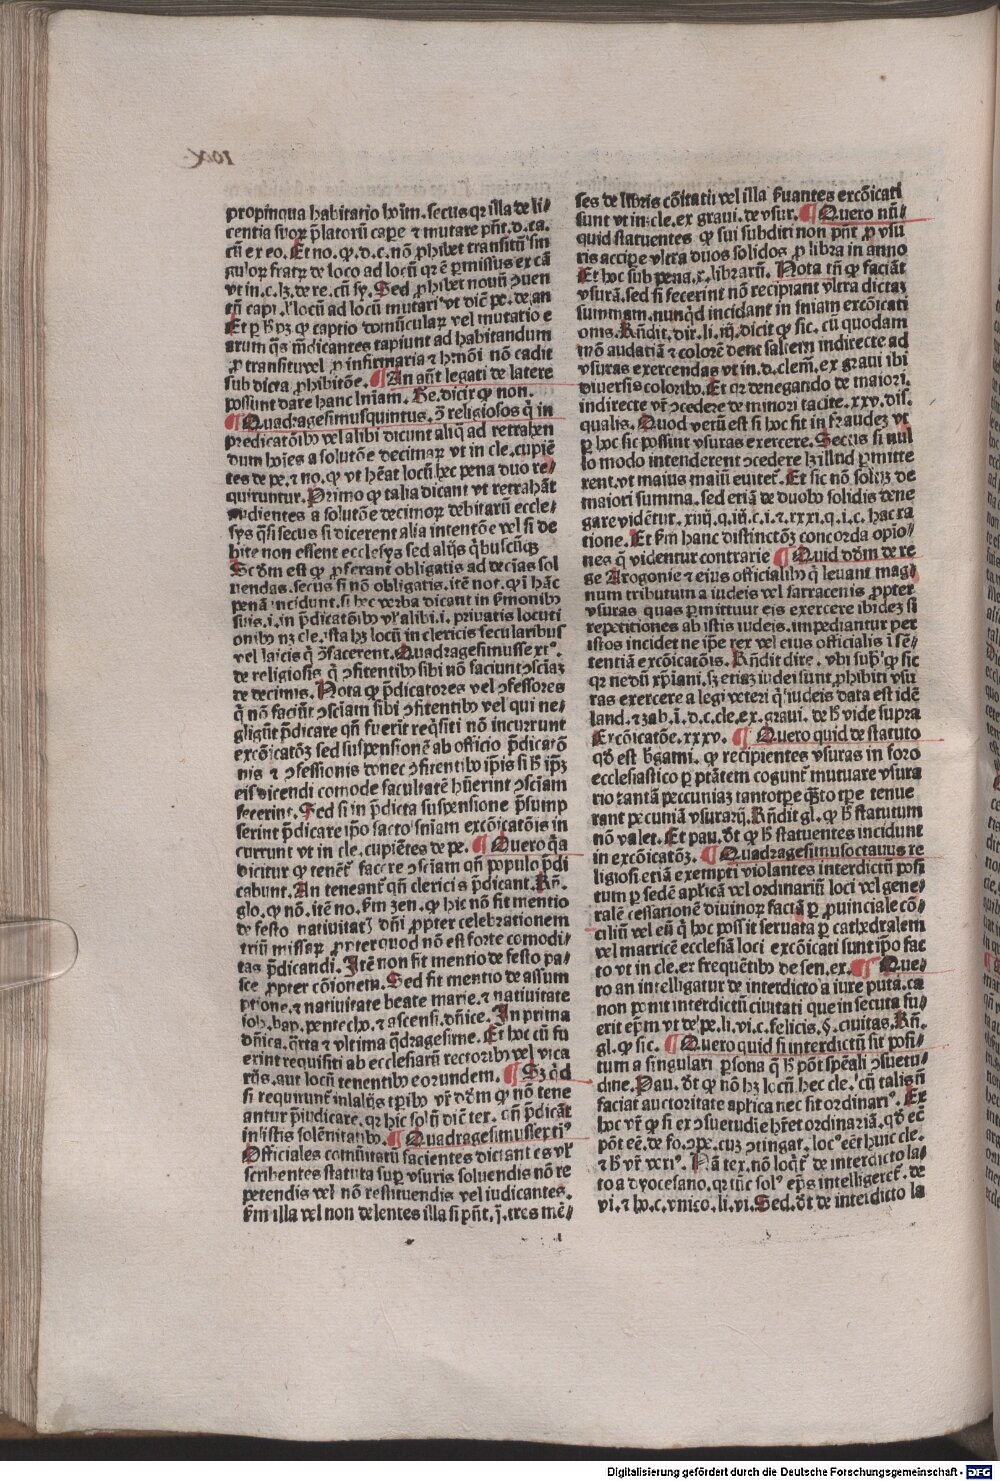 propinqua habitatio hoīm. secus qꝛ illa de li⸗
centia suoꝝ p̄latoꝝū cape ⁊ mutare pn̄t. d. ca.
cū ex eo. Et no. ꝙ. d. c. nō ꝓhibet transitū sin
guloꝝ fratꝝ de loco ad locū qꝛ ē ꝑmissus ex cā
vt in. c. lꝫ. de re. cū sy. Sed ꝓhibet nouū ꝯuen
tū capi. ⁊ locū ad locū mutari vt dic̄ pe. de an
Et ꝑ hoc pꝫ ꝙ captio domūculaꝝ vel mutatio e
arum q̄s mēdicantes capiunt ad habitandum
ꝓ transitu vel ꝓ infirmaria ⁊ hmōi nō cadit
sub dicta ꝓhibitōe. ¶ An aūt legati de latere
possunt dare hanc lniam. Ge. dicit ꝙ non.
¶ Quadragesimusquintus. ꝯ̄ religiosos q̄ in
predicatōibꝰ vel alibi dicunt aliq̄ ad retrahen
dum hoīes a solutōe decimaꝝ vt in cle. cupiē
tes de pe. ⁊ no. ꝙ vt hēat locū hec pena duo re⸗
quiruntur. Primo ꝙ talia dicant vt retrahāt
audientes a solutōe decimoꝝ debitarū eccle⸗
sijs q̄si secus si dicerent alia intentōe vel si de
bite non essent ecclesijs sed alijs q̄buscūqꝫ
Scdm est ꝙ ꝓferant obligatis ad decias sol
uendas. secus si nō obligatis. itē not. ꝙ ī hāc
penā incidunt. si hec verba dicant in ẜmonibꝰ
suis. i. in p̄dicatōibꝰ vl̓ alibi. i. priuatis locuti
onibꝰ nꝫ cle. ista hꝫ locū in clericis secularibus
vel laicis q̄ ꝯ̄facerent. Quadragesimussextꝰ.
de religiosis q̄ ꝯfitentibꝰ sibi nō faciunt ꝯsciāꝫ
de decimis. Nota ꝙ p̄dicatores vel ꝯfessores
q̄ nō faciūt ꝯsciam sibi ꝯfitentibꝰ vel qui ne⸗
gligūt p̄dicare qn̄ fuerit req̄siti nō incurrunt
excōicatōꝫ sed suspensionē ab officio p̄dicatō
nis ⁊ ꝯfessionis donec ꝯfitentibꝰ ip̄is si h̄ ip̄ꝫ
eis dicendi comode facultatē hūerint ꝯsciam
fecerint. Sed si in p̄dicta suspensione p̄sump
serint p̄dicare ip̄o facto sniam excōicatōis in
currunt vt in cle. cupiētes de pe. ¶ Quero q̄a
dicitur ꝙ tenēt̄ facere ꝯsciam qn̄ populo p̄di
cabunt. An teneant̄ qn̄ clericis p̄dicant. Rn̄.
glo. ꝙ nō. itē no. ẜm zen. ꝙ hic nō fit mentio
de festo natiuitatꝭ dn̄i ꝓpter celebrationem
triū missaꝝ ꝓpter quod nō est forte comodi⸗
tas p̄dicandi. Itē non fit mentio de festo pa⸗
sce ꝓpter cōionem. Sed fit mentio de assum
ptione. ⁊ natiuitate beate marie. ⁊ natiuitate
ioh. bap. pentecho. ⁊ ascensi. dn̄ice. In prima
dn̄ica. q̄rta ⁊ vltima q̄dragesime. Et hoc cū fu
erint requisiti ab ecclesiarū rectoribꝰ vel vica
rijs. aut locū tenentibꝰ eorundem. ¶ Sꝫ q̇d
si requirunt̄ in alijs tꝑibꝰ vr̄ dōm ꝙ nō tene
antur p̄iudicare. qꝛ hic solū dic̄ tex. qn̄ p̄dicāt
in istis solēnitatibꝰ. ¶ Quadragesimussextiꝰ
Officiales comūitatū facientes dictantes vl̓
scribentes statuta suꝑ vsuris soluendis nō re
petendis vel nō restituendis vel iudicantes.
ẜm illa vel non delentes illa si pn̄t. ī. tres mē⸗
ses de libris cōitatū vel illa ẜuantes excōicati
sunt vt in cle. ex graui. de vsur. ¶ Quero nū⸗
quid statuentes ꝙ sui subditi non pn̄t ꝓ vsu
ris accipe vltra duos solidos ꝓ libra in anno
Et hoc sub pena. x. librarū. Nota tn̄ ꝙ faciāt
vsurā. sed si fecerint nō recipiant vltra dictaꝫ
summam. nunqd incidant in sniam excōicati
onis. Rn̄dit. dit. li. iij. dicit ꝙ sic. cū quodam
mō audatiā ⁊ colorē dent saltem indirecte ad
vsuras exercendas vt in. d. clem. ex graui ibi
diuersis coloribꝰ. Et qꝛ denegando de maiori.
indirecte vr̄ ꝯcedere de minori tacite. xxv. dis.
qualis. Quod verū est si hoc fit in fraudeꝫ vt
ꝑ hoc sic possint vsuras exercere. Secus si nul
lo modo intenderent ꝯcedere lꝫ illud ꝑmitte
rent. vt maius malū euitet̄. Et sic nō solūꝫ de
maiori summa. sed etiā de duobꝰ solidis dene
gare vidētur. xiiij. q. iij. c. i. ⁊ xxxi. q. i. c. hac ra
tione. Et ẜm hanc distinctōꝫ concorda opio⸗
nes q̄ videntur contrarie ¶ Quid dōm de re
ge Arogonie ⁊ eius officialibꝰ q̄ leuant mag⸗
num tributum a iudeis vel sarracenis ꝓpter
vsuras quas ꝑmittunt eis exercere ibideꝫ si
repetitiones ab istis iudeis. impediantur per
istos incidet ne ip̄e rex vel eius officialis ī sē⸗
tentiā excōicatōis. Rn̄dit dite. vbi supꝰ ꝙ sic
qꝛ nedū xp̄iani. sꝫ etiaꝫ iudei sunt ꝓhibiti vsu
ras exercere a legi veteri q̄ iudeis data est idē
land. ⁊ zab. ī. d. c. cle. ex. graui. de h̄ vide supra
Excōicatōe. xxxv. ¶ Quero quid de statuto
qd̄ est ꝑgami. ꝙ recipientes vsuras in foro
ecclesiastico ꝑ ptātem cogunt̄ mutuare vsura
rio tantā peccuniaꝫ tanto tꝑe q̄nto tꝑe tenue
rant pecuniā vsurarij. Rn̄dit gl. ꝙ h̄ statutum
nō valet. Et pau. dt̄ ꝙ h̄ statuentes incidunt
in excōicatōꝫ. ¶ Quadragesimusoctauus re
ligiosi etiā exempti violantes interdictū posi
tum ꝑ sedē aplicā vel ordinariū loci vel gene⸗
ralē cessationē diuinoꝝ factā ꝑ ꝓuinciale cō⸗
ciliū vel eū q̄ hoc possit seruata ꝑ cathedralem
vel matricē ecclesiā loci excōicati sunt ip̄o fac
to vt in cle. ex frequētibꝰ de sen. ex. ¶ Que⸗
ro an intelligatur de interdicto a iure puta. ca
non ponit interdictū ciuitati que insecuta fu⸗
erit ep̄m vt de pe. li. vi. c. felicis. §. ciuitas. Rn̄.
gl. ꝙ sic. ¶ Quero quid si interdictū sit posi⸗
tum a singulari ꝑsona q̄ h̄ pōt spēali ꝯsuetu⸗
dine. Pau. dt̄ ꝙ nō hꝫ locū hec cle. cū talis n̄
faciat auctoritate aplica nec sit ordinariꝰ. Ex
hoc vr̄ ꝙ si ex ꝯsuetudīe hr̄et ordinariā. qd̄ eē
pōt eē. de fo. ꝯpe. cuꝫ ꝯtingat. locꝰ eēt huic cle.
⁊ h̄ vr̄ veriꝰ. Nā tex. nō loqt̄ de interdicto la⸗
to a dyocesano. qꝛ tūc solꝰ ep̄s intelligeret̄. de
vi. ⁊ ho. c. vnico. li. vi. Sed. dt̄ de interdicto la